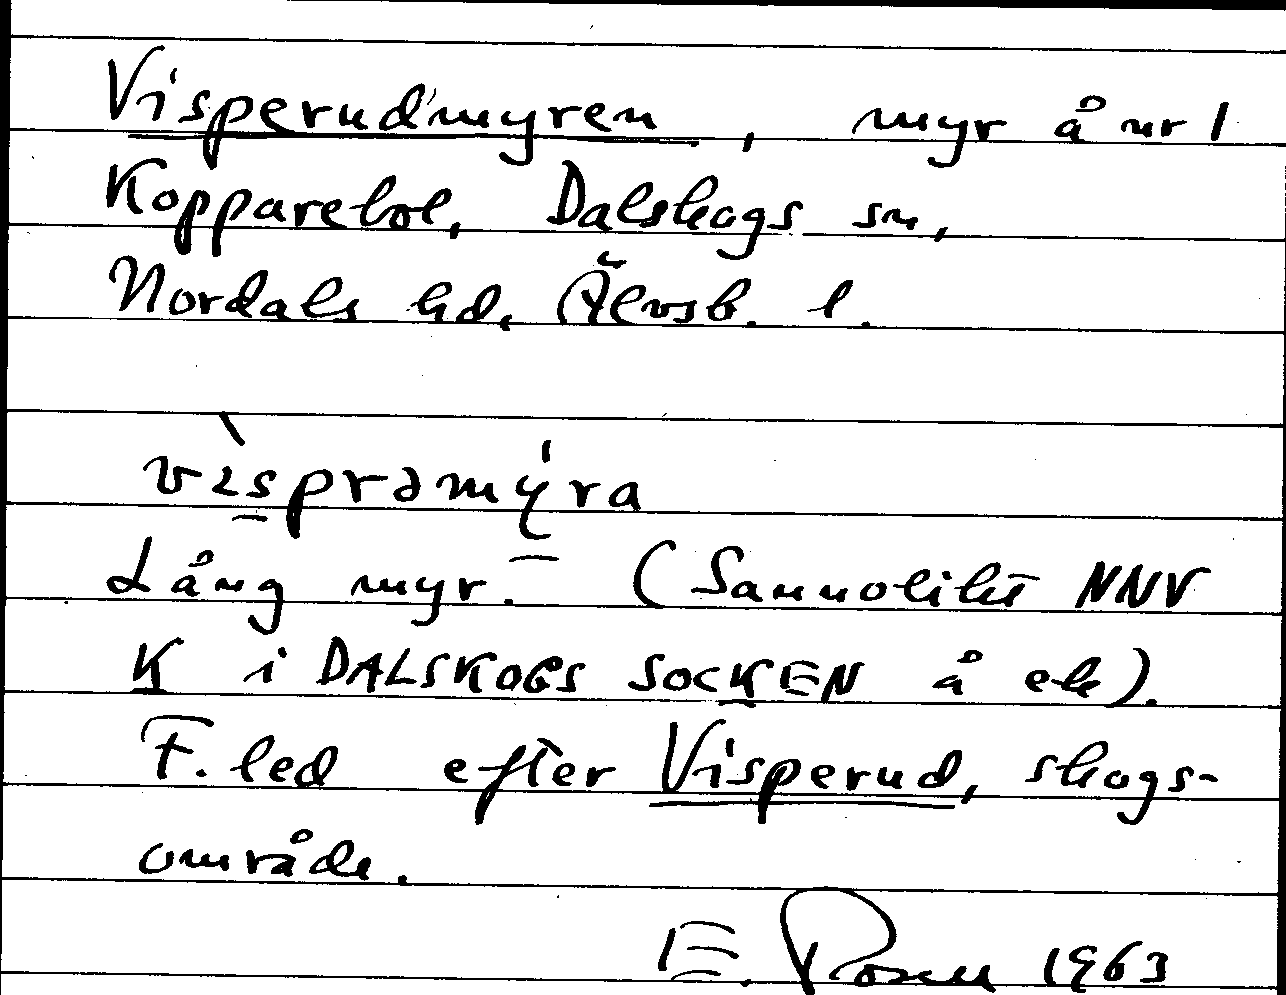 Visperudmyren, myr å nr 1
Kopparebol, Dalskogs sn,
Nordals hd, Älvsb. l.
vìsprəmýra
Lång myr. (Sannolikt NNV
K i DALSKOGS SOCKEN å ek).
F.led efter Visperud, skogs-
område.
E. Rosén 1963